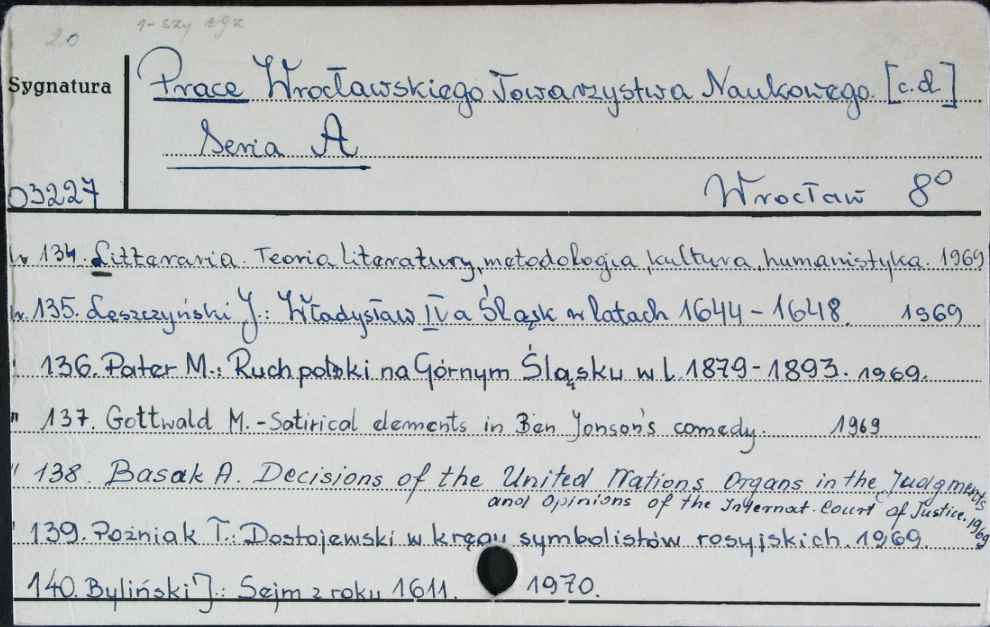 20 1-szy egz
Sygnatura
Prace Wrocławskiego Towarzystwa Naukowego. [c.d.]
Seria A
03227
Wrocław 8°
134. Litteraria. Teoria literatury, metodologia, kultura, humanistyka. 1969
135. Leszczyński J.: Władysław IV a Śląsk w latach 1644-1648. 1969
136. Pater M.: Ruch polski na Górnym Śląsku w l. 1879-1893. 1969.
" 137. Gottwald M. - Satirical elements in Ben Jonson's comedy. 1969
" 138. Basak A. Decisions of the United Nations Organs in the Judgments
and Opinions of the Internat. Court of Justice. 1969
" 139. Poźniak T.: Dostojewski w kręgu symbolistów rosyjskich. 1969.
140. Byliński J.: Sejm z roku 1611. 1970.